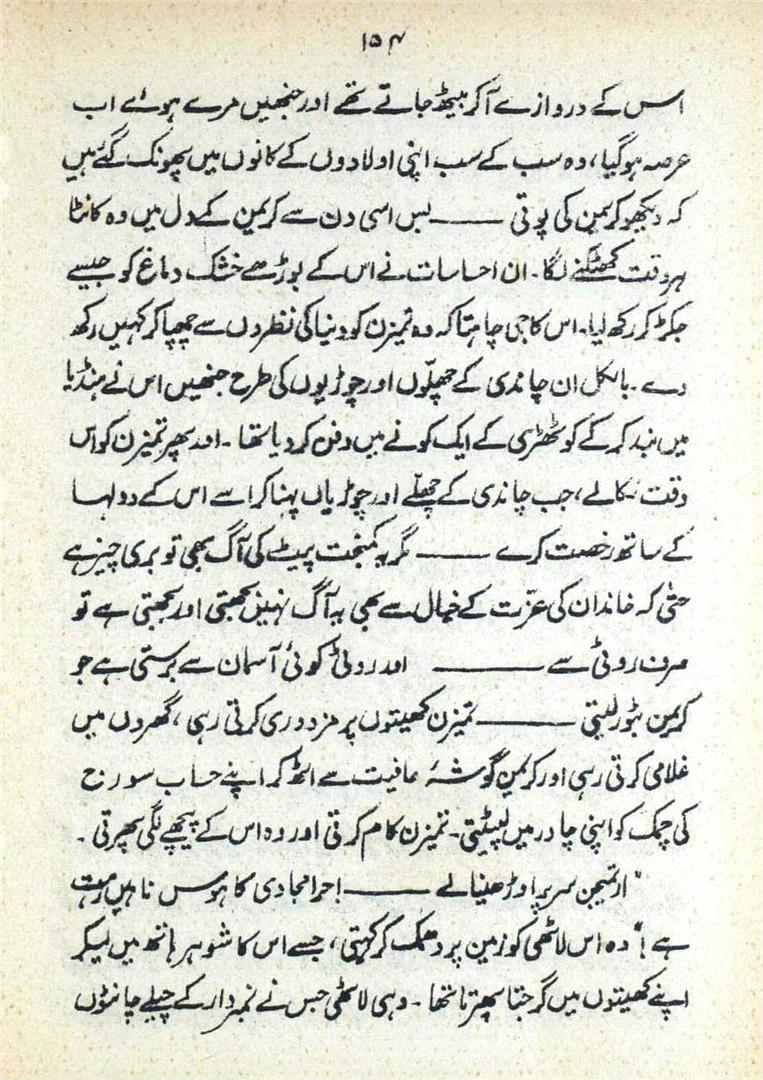 ۱۵۴
اس کے دروازے آکر بیٹھ جاتے تھے اور جنھیں مرے ہوئے اب
عرصہ ہوگیا، وہ سب کے سب اپنی اولادوں کے کانوں میں پھونک گئے ہیں
کہ دیکھو کریمن کی پوتی ــــــ بس اسی دن سے کریمن کے دل میں وہ کانٹا
ہر وقت کھٹکنے لگا۔ ان احساسات نے اس کے بوڑھے خشک دماغ کو جیسے
جکڑ کر رکھ لیا۔ اس کا جی چاہتا کہ وہ تمیزن کو دنیا کی نظروں سے چھپا کر کہیں رکھ
دے۔ بالکل ان چاندی کے چھلّوں اور چوڑیوں کی طرح جنھیں اس نے ہنڈیا
میں بند کرکے کوٹھڑی کے ایک کونے میں دفن کردیا تھا۔ اور پھر تمیزن کو اس
وقت نکالے، جب چاندی کے چھلّے اور چوڑیاں پہنا کر اسے اس کے دولہا
کے ساتھ رخصت کرے ــــــ مگر یہ کمبخت پیٹ کی آگ بھی تو بری چیز ہے
حتٰی کہ خاندان کی عزّت کے خیال سے بھی یہ آگ نہیں بجھتی اور بجھتی ہے تو
صرف روٹی سے ــــــــ اور روٹی کوئی آسمان سے برستی ہے جو
کریمن بٹور لیتی ــــــــ تمیزن کھیتوں پر مزدوری کرتی رہی، گھروں میں
غلامی کرتی رہی اور کریمن گوشۂ عافیت سے اٹھ کر اپنے حساب سورج
کی چمک کو اپنی چادر میں لپیٹتی۔ تمیزن کام کرتی اور وہ اس کے پیچھے لگی پھرتی۔
"ار تمیجن سر پر اوڑھنیا لے ــــــ احرامجادی کا ہوس ناہیں رہت
ہے!" وہ اس لاٹھی کو زمین پر دھمک کر کہتی، جسے اس کا شوہر ہاتھ میں لیکر
اپنے کھیتوں میں گرجتا پھرتا تھا۔ وہی لاٹھی جس نے نمبردار کے چیلے چانٹوں